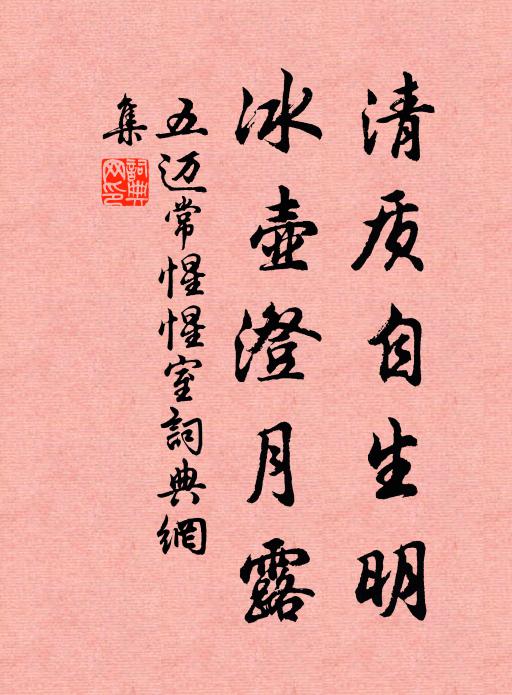 清质自生明
冰壶澄月露
五迈常惺惺室詞典網
集
詞典
网印